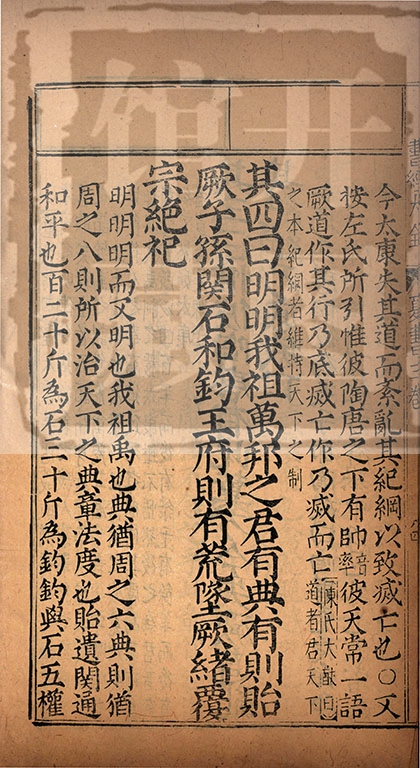 今太康失其道而紊亂其紀綱以致滅亡也○又
按左氏所引惟彼陶唐之下有帥音率彼天常一語
厥道作其行乃底滅亡作乃滅而亡陳氏大猷曰道者君天下
之本紀綱者維持天下之制
其四曰明明我祖萬邦之君有典有則貽
厥子孫関石和鈞王府則有荒墜厥緒覆
宗絶祀
明明明而又明也我祖禹也典猶周之六典則猶
周之八則所以治天下之典章法度也貽遺関通
和平也百二十斤為石三十斤為鈞鈞與石五權